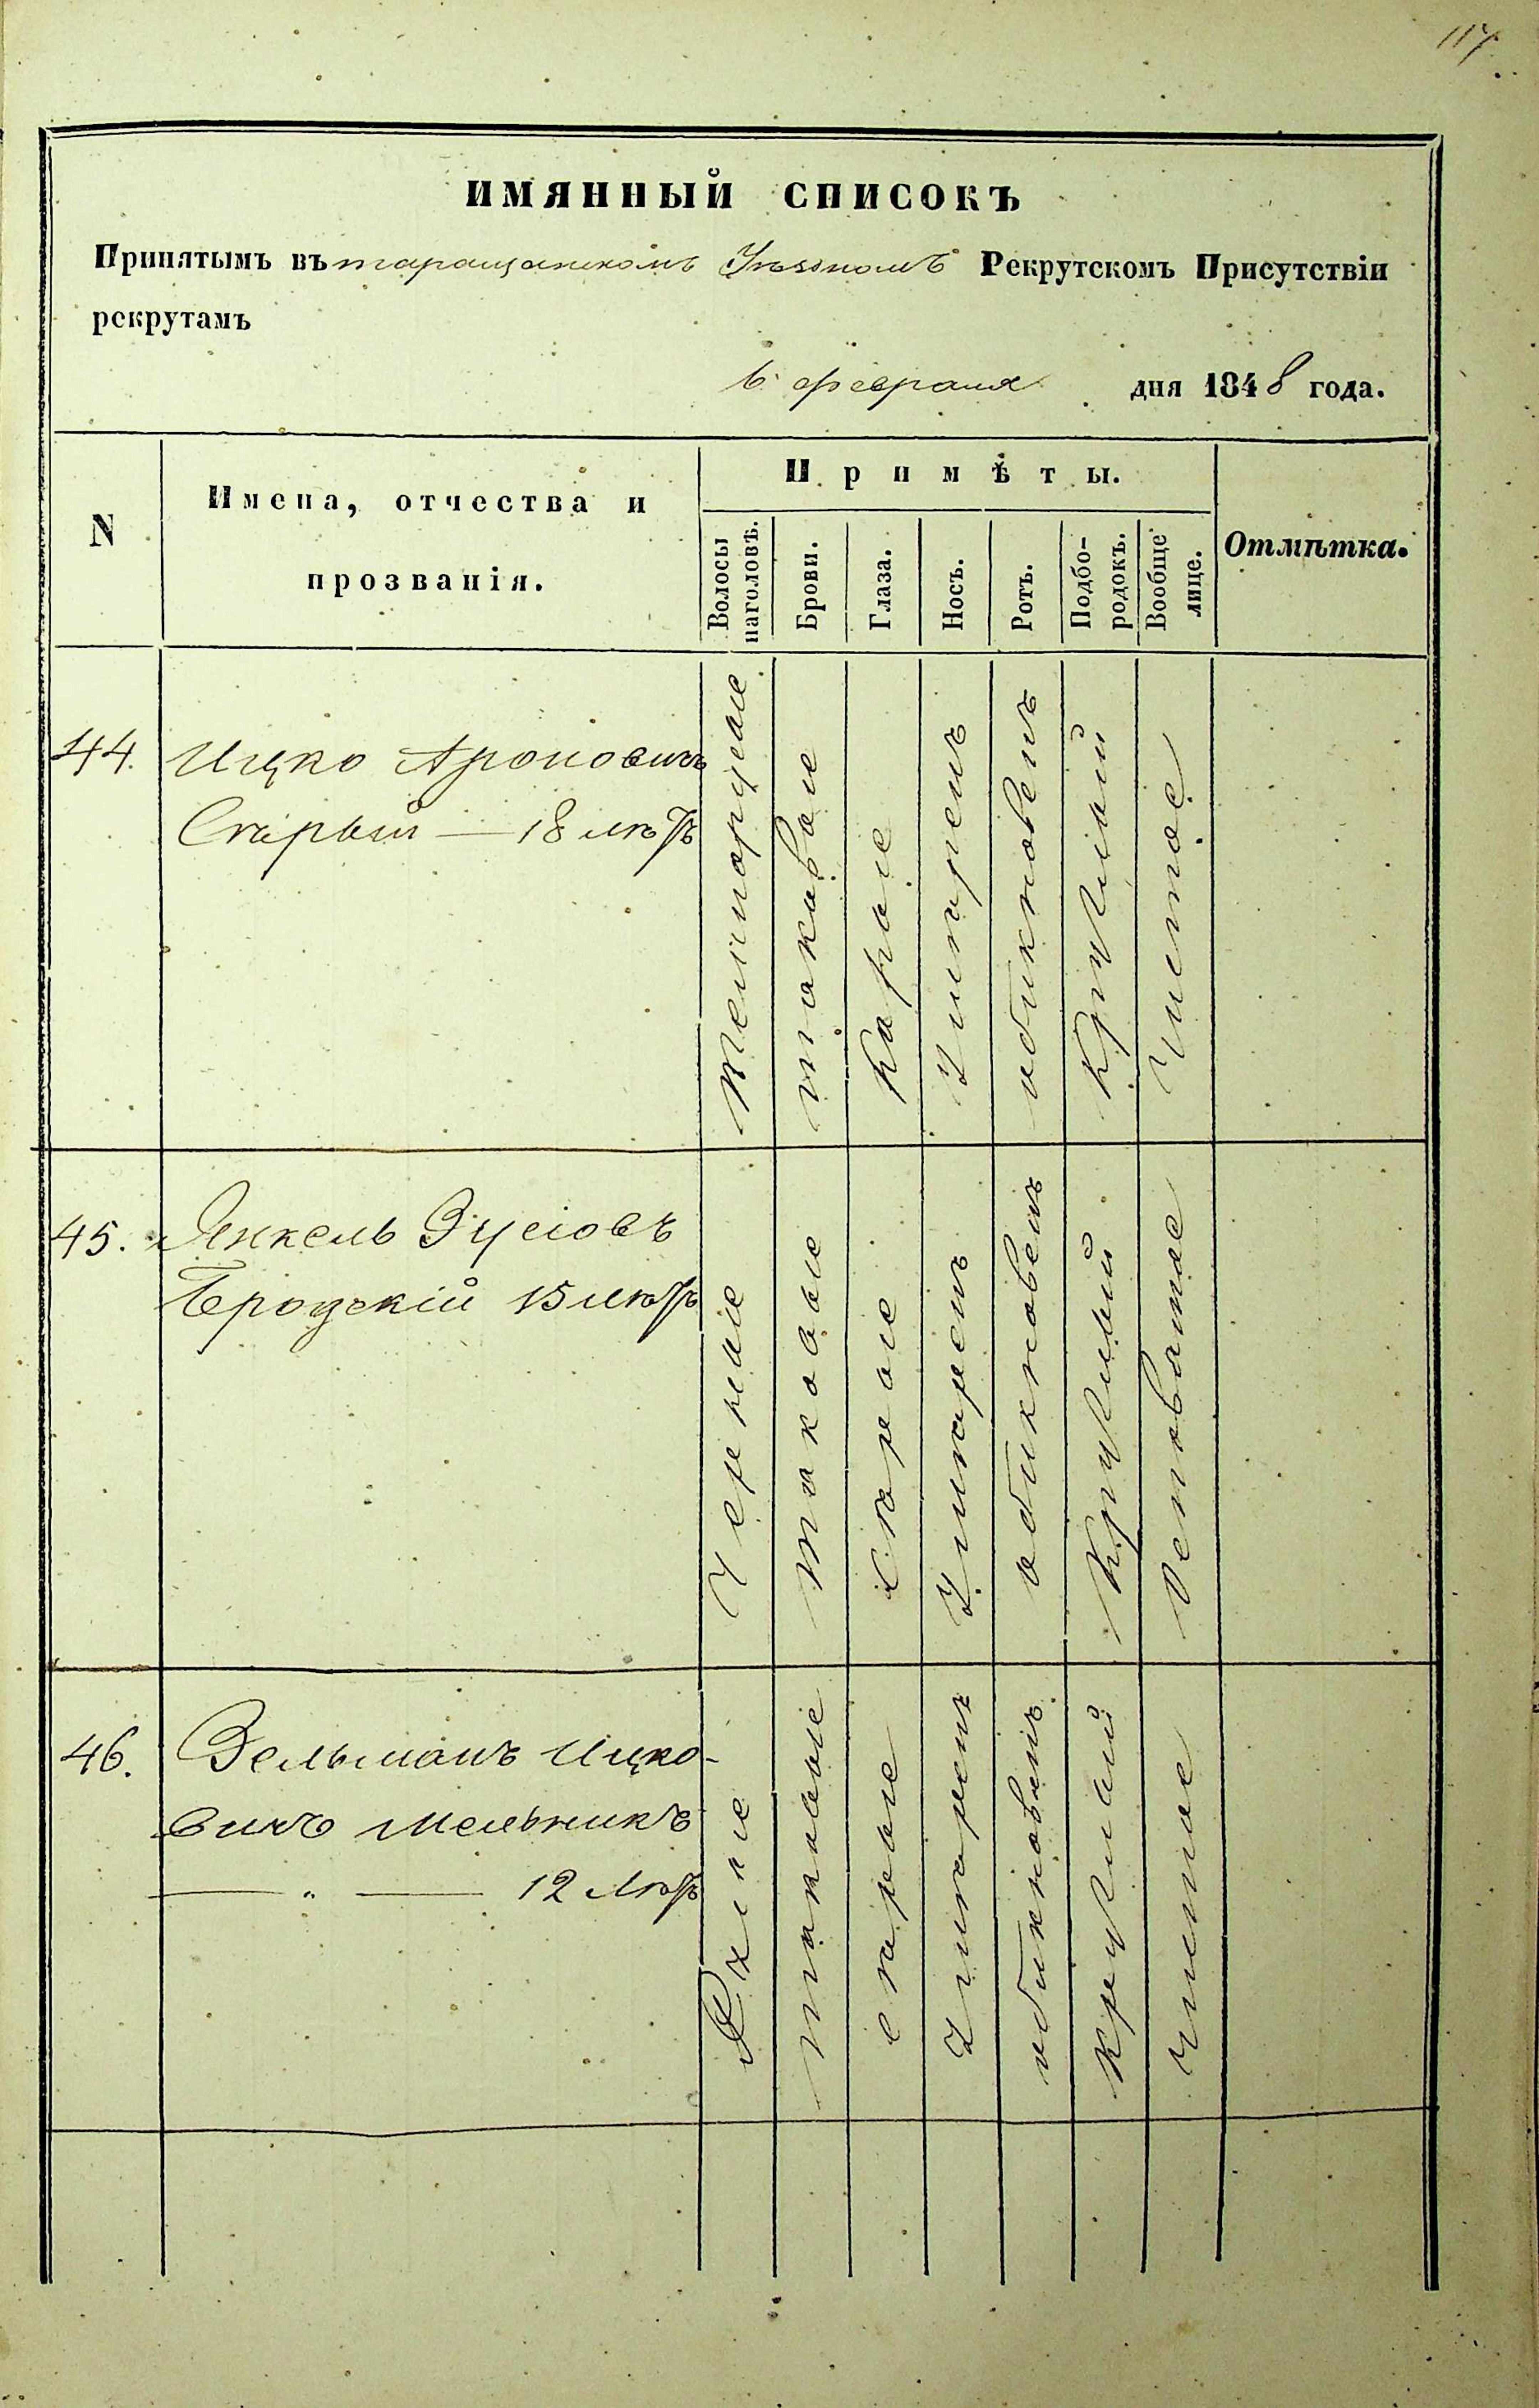 117
ИМЯННЫЙ СПИСОКЪ
Принятымъ въ таращанскомъ Уѣздномъ Рекрутскомъ Присутствіи
рекрутамъ
6 февраля дня 1848 года.
N
Имена, отчества и
прозванія.
Примѣты.
Волосы
наголовѣ.
Брови.
Глаза.
Носъ.
Ротъ.
Подбо-
родокъ.
Вообще
лице.
Отмѣтка.
44.
Ицко Ароновичъ
Старый — 18 лѣтъ
таковые
Карые
Умѣренъ
обикновенъ
Круглый
Чистое
45.
Янкель Зусіовъ
Бродскій 15 лѣтъ
Черные
таковые
Сѣрые
Умѣренъ
обикновенъ
Круглый
46.
Зельманъ Ицко-
вичъ Мельникъ
— " — 12 лѣтъ
таковые
сѣрые
Умѣренъ
обикновенъ
Круглый
Чистое